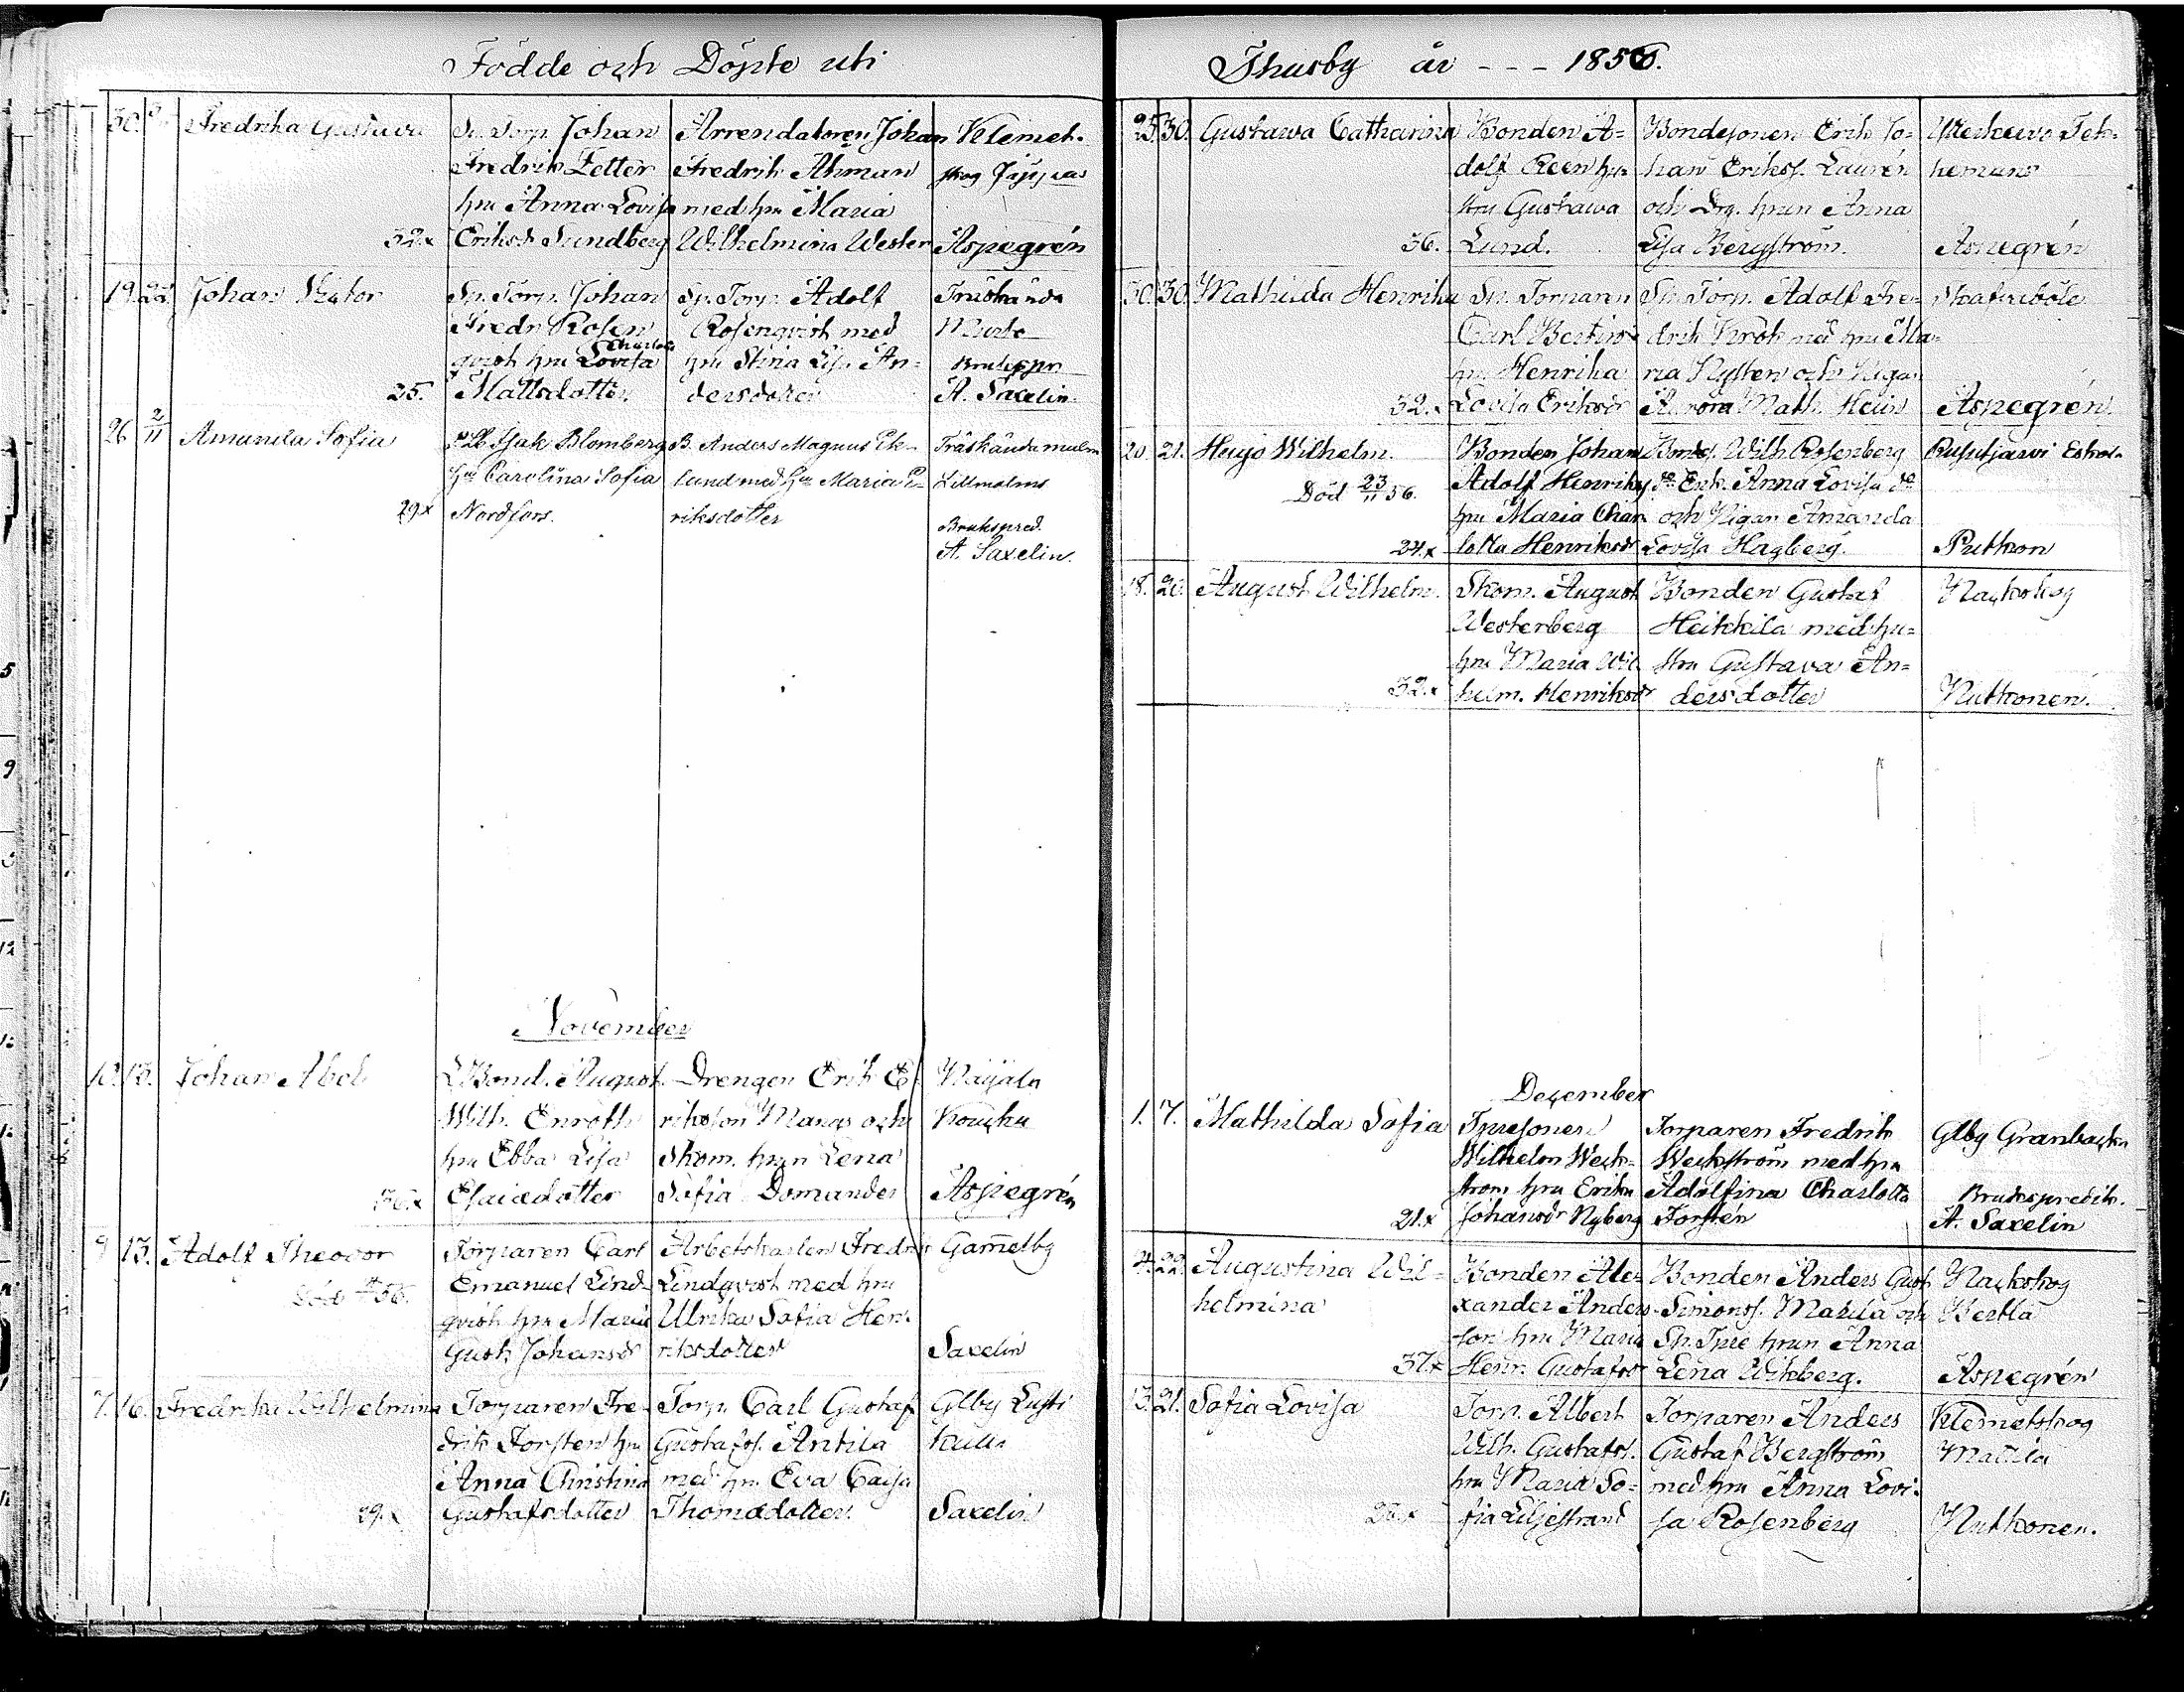 Födde och Döpte uti
30.
Fredrika Gustava
Sp. Torp. Johan
Fredrik Zetter
hru Anna Lovisa
32.x Eriksdr Sundberg
Arrendatoren Johan
Fredrik Åhman
med hru Maria
Wilhelmina Wester
Klemet-
skog
Aspegrén
19. 22.
Johan Victor
Sp. Torp. Johan
Fredr. Rosen
Charlotta
qvist hru Lovisa
25. Mattsdotter
Sp. Torp. Adolf
Rosenqvist med
hru Stina Lisa An-
dersdotter
Träskända
Brukspr.
A. Saxelin
26. 2/11
Amanda Sofia
Isak Blomberg
Hru Carolina Sofia
29x Nordfors.
B. Anders Magnus Ek-
lund med Hru Maria E-
riksdotter
Träskända malm
Lillmalms
Brukspred.
A. Saxelin.
November
13.
Johan Abel
Bond. August
Wilh. Enroth
hru Ebba Lisa
36.x Esaiædotter
Drengen Erik E-
rikson Manas och
Skom. hrun Lena
Sofia Domander
Aspegrén
9. 13.
Adolf Theodor
Torparen Carl
Emanuel Lind-
qvist hru Maria
Gust. Johansdr
Arbetskarlen Fredrik
Lindqvist med hru
Ulrika Sofia Hen-
riksdotter
Gam̄elby
Saxelin
7. 16.
Fredrika Wilhelmina
Torparen Fre-
drik Forsten hru
Anna Christina
29.x Gustafsdotter
Torp. Carl Gustaf
Gustafss. Antila
med hru Eva Caisa
Thomædotter.
Glby Lusti
kulla
Saxelin
Thusby år - - - 1856.
25. 30.
Gustawa Catharina
Bonden A-
dolf Reen hu-
stru Gustawa
36. Lund.
Bondesonen Erik Jo-
han Erikss. Laurén
och Drg. hrun Anna
Lisa Bergström.
Aspegrén
30. 30.
Mathilda Henrika
Sp. Torparen
Carl
hru Henrika
32.x Lovisa Eriksdr
Sp. Torp. Adolf Fre-
drik Krok med hru Ma-
ria Nysten och Pigan
Aurora Math. Hein
Skafurböle
Aspegrén.
20. 21.
Hugo Wilhelm.
Död 23/11 56.
Bonden Johan
Adolf Henriks
hru Maria Char
24.x lotta Henriksdr
Bonds. Wilh. Rosenberg
do Enk. Anna Lovisa do
och Pigan Amanda
Lovisa Hagberg.
Rusutjärvi Eskol-
Putkon
18. 20.
August Wilhelm.
Skom. August
Westerberg
hru Maria Wil
32.x helm. Henriksdr
Bonden Gustaf
Heikkila med hu-
stru Gustava An-
dersdotter
Nackskog
Nutkonen.
December
1. 7.
Mathilda Sofia
Tpresonen
Wilhelm Weck-
ström hru Erika
21.x Johansdr Nyberg
Torparen Fredrik
Weckström med hru
Adolfina Charlotta
Forstén
Glby Granbacka
Brukspredik.
A. Saxelin
4. 22.
Augustina Wil-
helmina
Bonden Ale-
xander Anders-
son hru Maria
37.x Henr. Gustafsdr
Bonden Anders Gust.
Simonss. Mattila och
Sp. Tpre hrun Anna
Lena Wikberg.
Nackskog
Bertla
Aspegrén
13. 21.
Sofia Lovisa
Torp. Albert
Wilh. Gustafss.
hru Maria So-
fia Liljestrand
Torparen Anders
Gustaf Bergström
med hru Anna Lovi-
sa Rosenberg
Klemetskog
Mattila
Nutkonen.